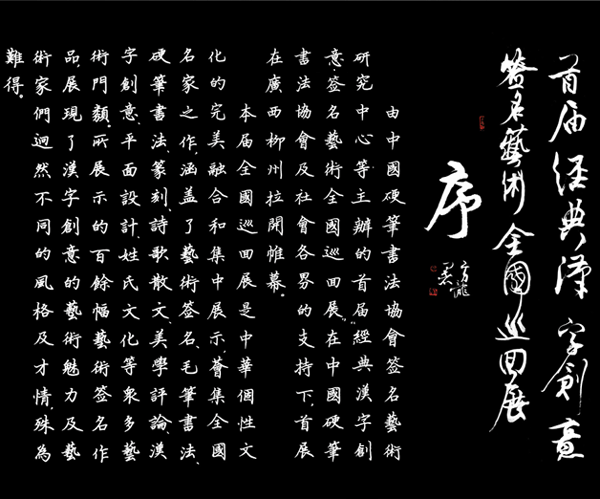 首届经典漢字創意
签名藝術全國巡回展
序
由中國硬筆書法協會簽名藝術
研究中心等主辦的首届“經典漢字創
意簽名藝術全國巡回展”,在中國硬筆
書法協會及社會各界的支持下,首展
在廣西柳州拉開帷幕。
本届全國巡回展是中華個性文
化的完美融合和集中展示,薈集全國
名家之作,涵盖了藝術簽名、毛筆書法、
硬筆書法、篆刻、詩歌散文、美學評論、漢
字創意、平面設計、姓氏文化等衆多藝
術門類。所展示的百餘幅藝術簽名作
品,展現了漢字創意的藝術魅力及藝
術家們迥然不同的風格及才情,殊為
難得。